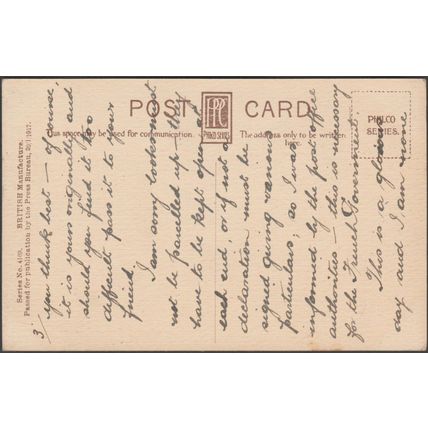 POST CARD
PHILCO SERIES
This space may be used for communication.
The address only to be written here.
PHILCO
SERIES.
Series No. 4169. BRITISH Manufacture.
Passed for publication by the Press Bureau, 1917.
3/
you think best – of course,
it is yours originally and
should you find it too
difficult pass it to your
friend.
I am sorry books must
not be parcelled up – they
have to be kept open at
each end, or if not a
declaration must be
signed giving various
particulars, so I was
informed by the post office
authorities – this is necessary
for the French Government.
This is a glorious
day and I am none